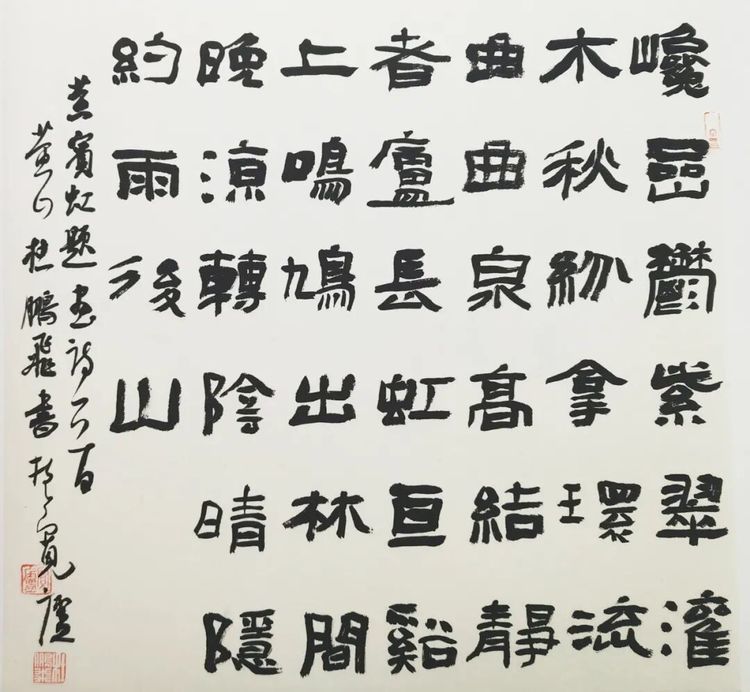 巉嵒鬱紫翠灌
木秋紛拿環流
曲曲泉高結靜
者廬長虹亘谿
上鳴鳩出林間
晚涼轉陰晴隱
約雨後山
黃賓虹題畫詩
黃山鵬飛書於寬廬